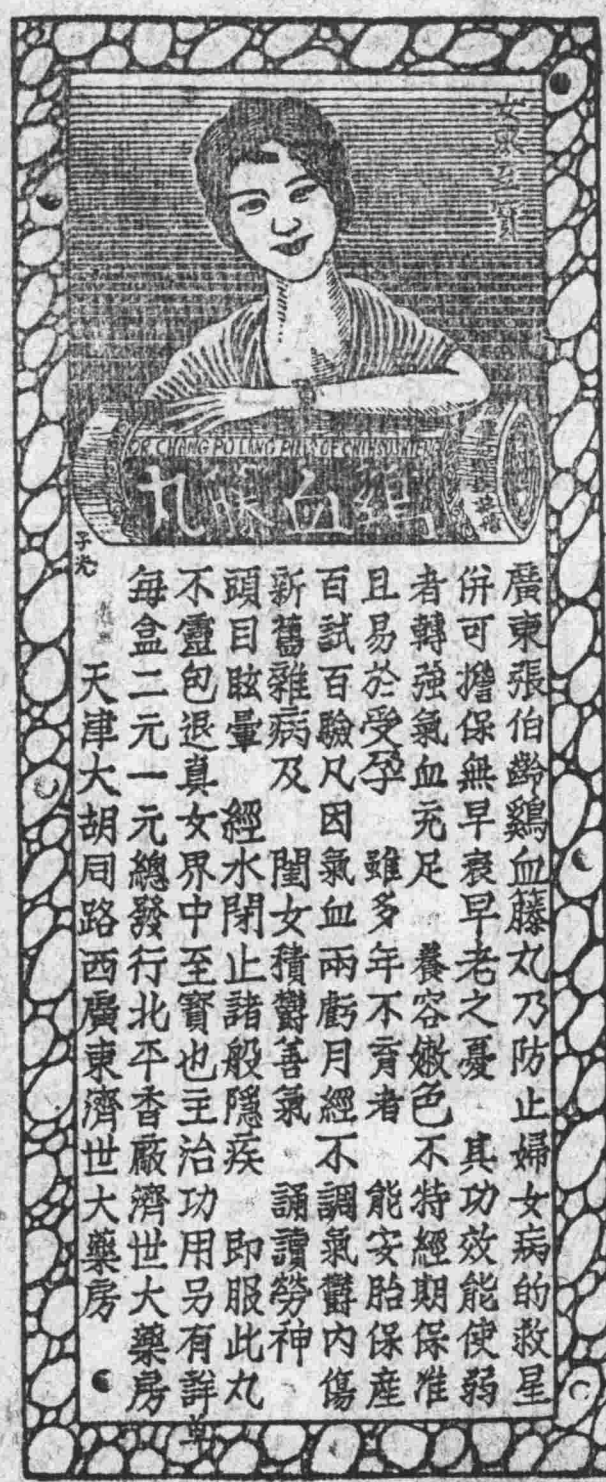 女界至寶
DR CHANG PO LANG PILLS OF
鷄血籐丸
子光
廣東張伯齡鷄血籐丸乃防止婦女病的救星
併可擔保無早衰早老之憂　其功效能使弱
者轉強氣血充足　養容嫩色不特經期保准
且易於受孕　雖多年不育者　能安胎保產
百試百驗凡因氣血兩虧月經不調氣欝內傷
新舊雜病及　閨女積欝善氣　誦讀勞神
頭目眩暈　經水閉止諸般隱疾　即服此丸
不靈包退真女界中至寳也主治功用另有詳單
每盒二元一元總發行北平香廠濟世大藥房
天津大胡同路西廣東濟世大藥房